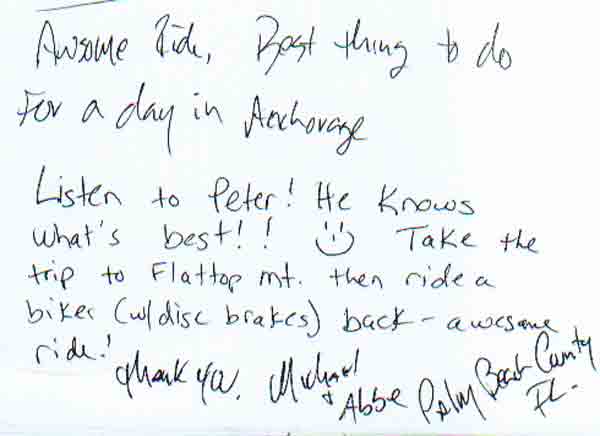 Awsome Ride, Best thing to do
For a day in Anchorage
Listen to Peter! He knows
what's best!! Take the
trip to Flattop mt. then ride a
biker (w/disc brakes) back - awesome
ride!
thank you, Michael
& Abbe Palm Beach County
FL.